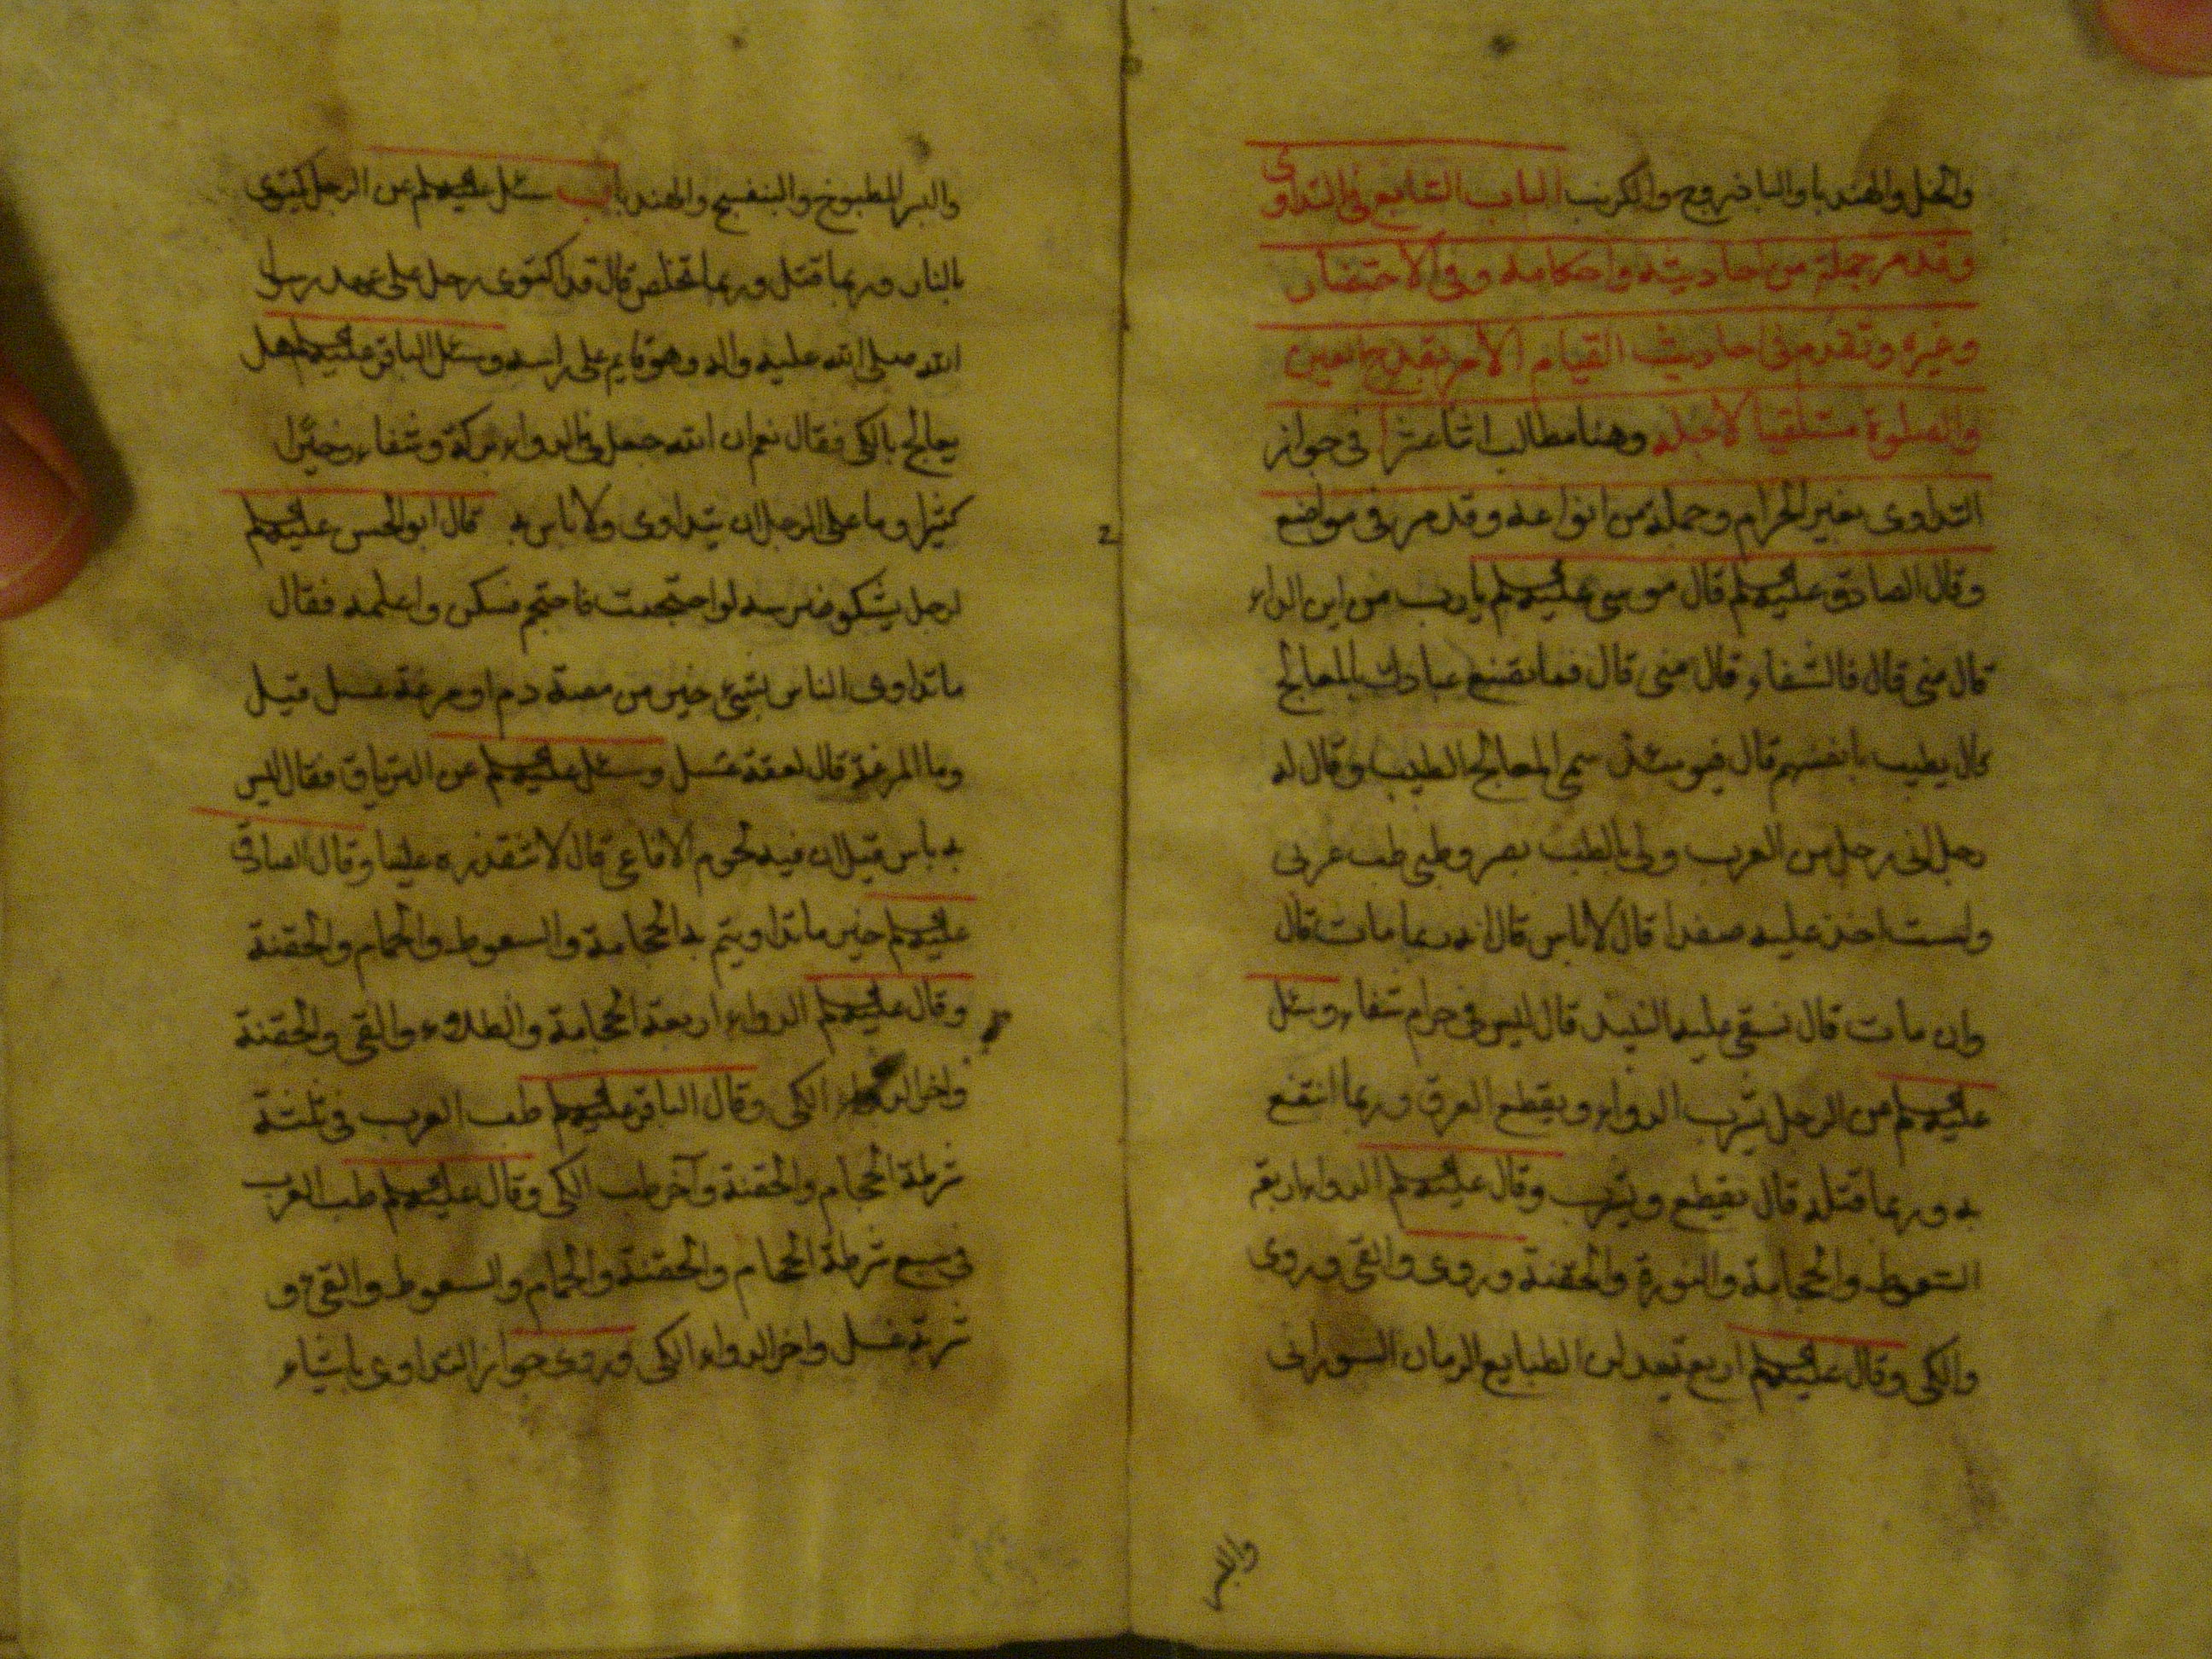 والخل والهندبا والباذروج والكرنب الباب السابع في التداوى
وقد مر جملة من احاديثه واحكامه وفي الاحتضار
وغيره وتقدم في احاديث القيام الامر بقدح العين
والصلوة مستلقيا لاجله وهنا مطالب اثنا عشر ا في جواز
التداوى بغير الحرام وجملة من انواعه وقد مر في مواضع
وقال الصادق عليه السلم قال موسى عليه السلم يا رب من اين الداء
قال منى قال فالشفاء قال منى قال فما يصنع عبادك بالمعالج
قال يطيب بانفسهم قال فيومئذ سمى المعالج الطبيب وقال له
رجل انى رجل من العرب ولى بالطب بصر وطبى طب عربى
ولست اخذ عليه صفدا قال لا باس قال انه ربما مات قال
وان مات قال نسقى عليه النبيذ قال ليس في حرام شفاء وسئل
عليه السلم عن الرجل يشرب الدواء ويقطع العرق وربما انتفع
به وربما قتله قال يقطع ويشرب وقال عليه السلم الدواء اربعة
السعوط والحجامة والنورة والحقنة وروى والقى وروى
والكى وقال عليه السلم اربع تعدلن الطبايع الرمان السورانى
والبسر
والبسر المطبوخ والبنفسج والهندبا ب سئل عليه السلم عن الرجل يكتوى
بالنار وربما قتل وربما تخلص قال قد اكتوى رجل على عهد رسول
الله صلى الله عليه واله وهو قايم على راسه وسئل الباقر عليه السلم هل
يعالج بالكى فقال نعم ان الله جعل في الدواء بركة وشفاء وخيرا
كثيرا وما على الرجل ان يتداوى ولا باس به قال ابو الحسن عليه السلم
لرجل يشكو ضرسه لو احتجمت فاحتجم فسكن واعلمه فقال
ما تداوى الناس بشيء خير من مصة دم او مزعة عسل قيل
وما المزعة قال لعقة عسل وسئل عليه السلم عن الترياق فقال ليس
به باس قيل ان فيه لحوم الافاعى قال لا تقذره علينا وقال الصادق
عليه السلم خير ما تداويتم به الحجامة والسعوط والحمام والحقنة
وقال عليه السلم الدواء اربعة الحجامة والطلاء والقى والحقنة
واخر الدواء الكى وقال الباقر عليه السلم طب العرب في ثلثة
شرطة الحجام والحقنة وآخر طب الكى وقال عليه السلم طب العرب
في سبع شرطة الحجام والحقنة والحمام والسعوط والقىء و
شربة عسل واخر الدواء الكى وروى جواز التداوى باشياء